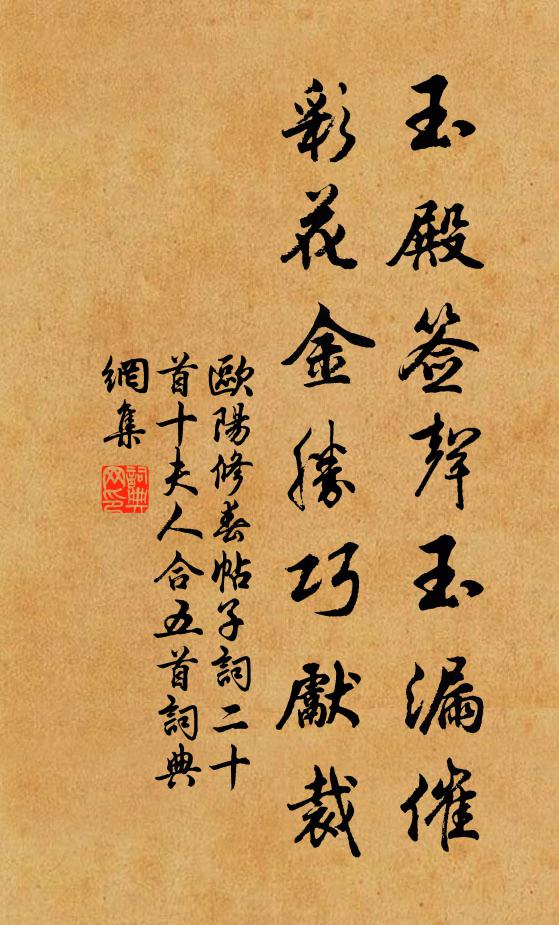 玉殿签聲玉漏催
彩花金勝巧獻裁
歐陽修春帖子詞二十
首十夫人合五首詞典
網集
詞典
网印